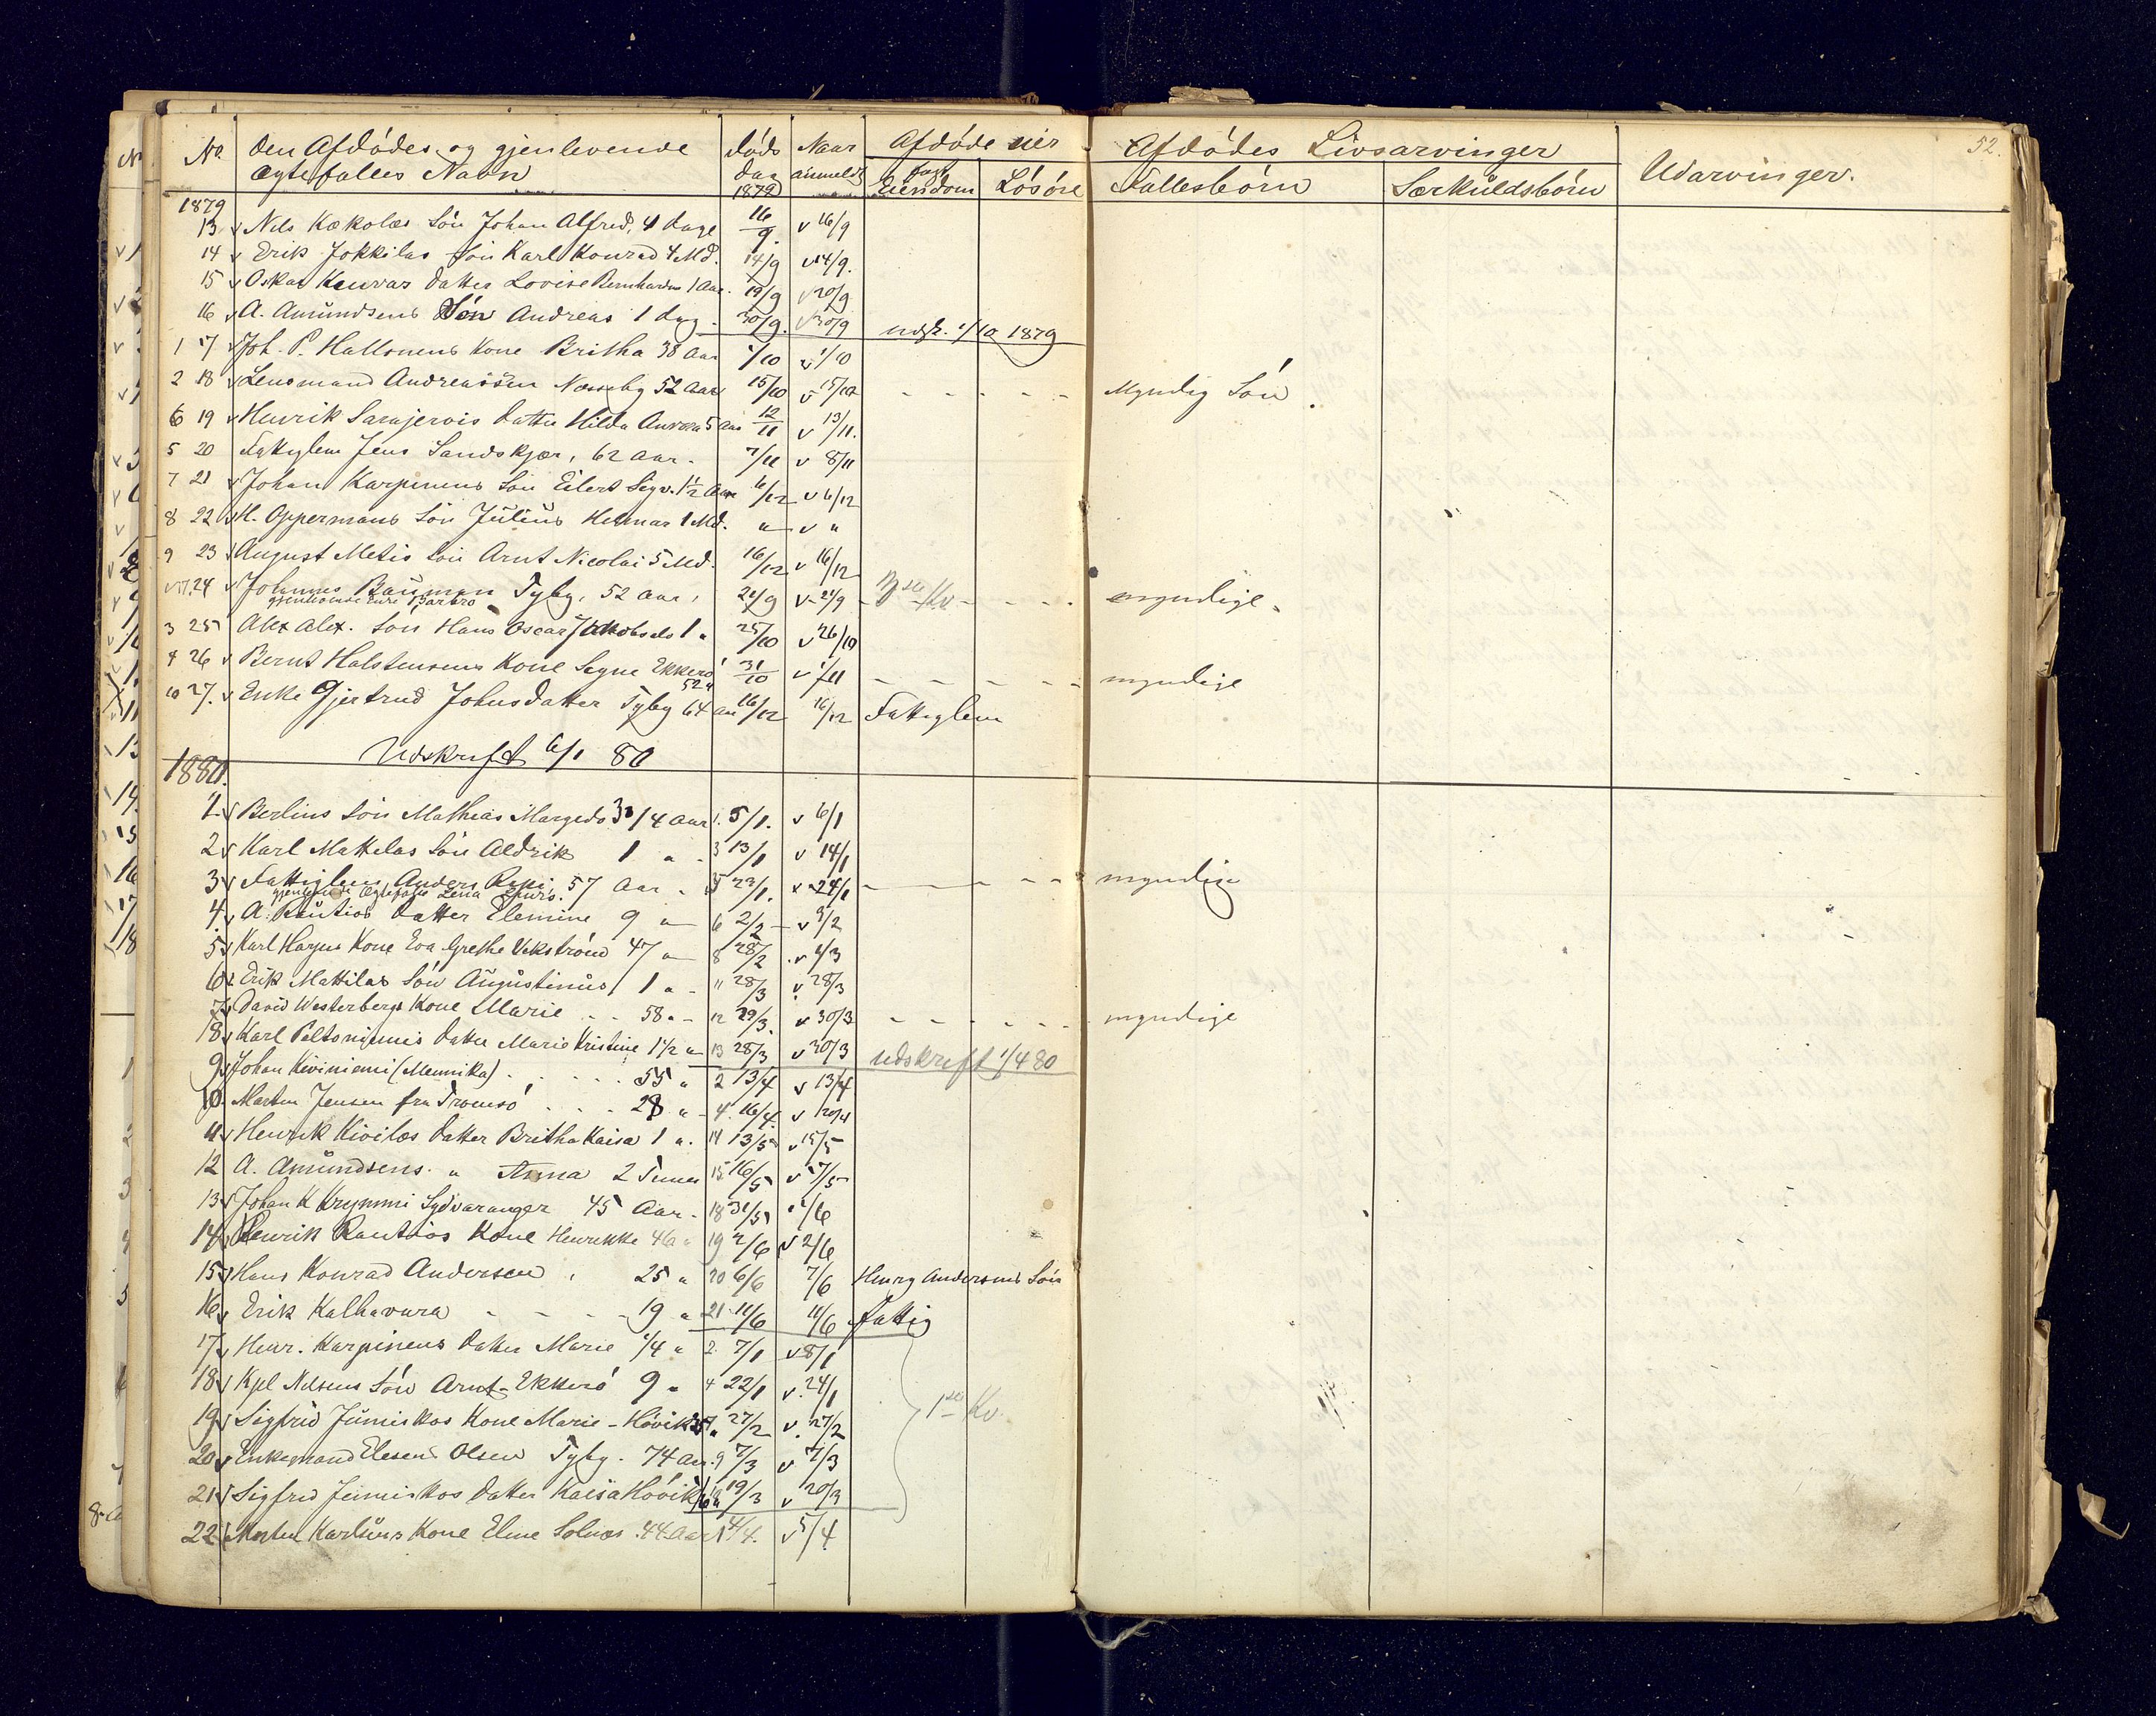 No. Den Afdødes og gjenlevende Døds Naar Afdøde eier Afdødes Livsarvinger Udarvinger. 52.
Ægtefælles Navn dag anmeldt fast Eiendom Løsøre Fællesbørn Særkuldsbørn
1879 1879
13 v Nils Kækolas Søn Johan Alfred, 4 dage 16/9. v 16/9
14 v Erik Jokkilas Søn Karl Konrad 4 Md. 14/9 v 14/9.
15 v Oskar Kenvas Datter Lovise Bernhardine 1 Aar. 19/9 v 20/9
16 v A. Amundsens Søn Andreas 1 dag. 30/9. v 30/9 udsk. 1/10 1879
1 17 v Joh. P. Hallonens Kone Britha 38 Aar 1/10 v 1/10
2 18 v Lensmand Andreassen Næsseby 52 Aar 15/10 v 15/10 - - - - - Myndig Søn.
6 19 v Henrik Sarajervis Datter Hilda Aurora 5 Aar 12/11 v 13/11.
5 20 Fattiglem Jens Sandskjær, 62 Aar. 7/11 v 8/11
7 21 v Johan Karpinens Søn Eilert Sigv. 1 1/2 Aar 6/12 v 6/12
8 22 v H. Oppermans Søn Julius Helmar 1 Md. " v "
9 23 v August Metis Søn Arnt Nicolai 5 Md. 16/12 v 16/12
24 v Johannes Bauman Tyby, 52 Aar, 21/9 v 21/9 - 3die Kv - - - - myndige.
gjenlevende Enke Barbro
3 25 Alex Alex. Søn Hans Oscar Jakobselv 1 " 25/10 v 26/10
4 26 v Bernt Halstensens Kone Segne Ekkerø 31/10 v 1/11 - - - - - myndige
52 "
10 27. v Enke Gjertrud Johnsdatter Tyby 64 Aar 16/12 16/12 Fattiglem
Udskrift 6/1 80
1880.
1 v Berlins Søn Mathias Margido 3 3/4 Aar 1. 5/1. v 6/1
2 v Karl Mattilas Søn Aldrik 1 " - 3 13/1 v 14/1
3 v Fattiglem Anders Rupi, 57 Aar - 5 23/1. v 24/1 - - - - - myndige
gjenlevende Ægtefælle Lena
4. v A. Rautios Datter Elemine 9 " 6 2/2 - v 3/2
5 v Karl Hagens Kone Eva Grethe Vekström 47 " 8 28/2 v 1/3
6 v Erik Mattilas Søn Augustinus 1 " - 11 28/3 v 28/3
7 v David Westerbergs Kone Marie - - 58 " - 12 29/3. v 30/3 - - - - - myndige
8 v Karl Peltoniemis Datter Marie Kristine 1 1/2 " 13 28/3 v 30/3 udskrift 1/4 80
9 v Johan Kiviniemi (Mennika) . . . . . 55 " 2 13/4 v 13/4
10 Martin Jensen fra Tromsø . . . . 28 " - 4. 16/4 v 20/4
11 v Henrik Kivilas Datter Britha Kaisa 1 ". 14 13/5 v 15/5
12 A. Amundsens. " Anna 2 Timer 15 16/5 v 17/5
13 v Johan K Krymmi Sydvaranger 45 Aar - 18 31/5 1/6
14 v Henrik Rautios Kone Henrikke 46 " 19 2/6 v 2/6
15 v Hans Konrad Andersen , 25 " 20 6/6 7/6 Henry Andersens Søn
16 v Erik Kalhavara - - - - 19 " 21 11/6 11/6 fattig
17 v Henr. Karpinens Datter Marie 1/4 " 2. 7/1 v 8/1
18 v Kjel Nilsens Søn Arnt - Ekkerø 9 " 4 22/1 v. 24/1 1ste Kv.
19 v Sigfrid Jumiskos Kone Marie - Høvik 7 27/2 v. 27/2
20 v Enkemand Elesens Olsen Tyby. 74 Aar. 9 7/3 v 7/3
21 v Sigfrid Jumiskos Datter Kaisa Høvik 10 19/3 v 20/3
22 Morten Karlsens Kone Eline Solnes. 44 Aar 1 4/4. v 5/4